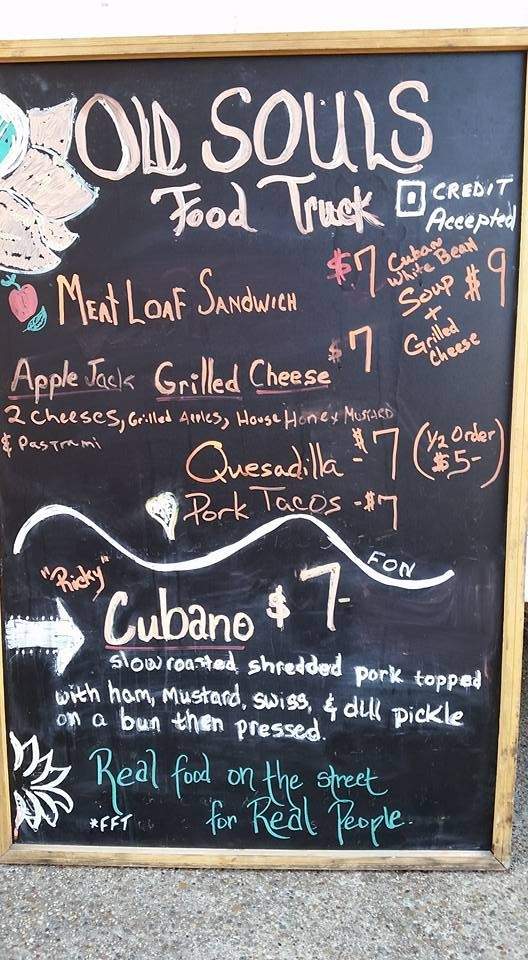 OLD SOULS
Food Truck
CREDIT
Accepted
MEAT LOAF SANDWICH $7
Cuban
White Bean
Soup $9
+
Grilled
Cheese
Apple Jack Grilled Cheese $7
2 Cheeses, Grilled Apples, House Honey Mustard
& Pastrami
Quesadilla - $7 (1/2 Order
$5-)
Pork Tacos - $7
FON
"Ricky"
Cubano $7-
slow roasted shredded pork topped
with ham, Mustard, swiss, & dill pickle
on a bun then pressed.
Real food on the street
for Real People.
*FFT